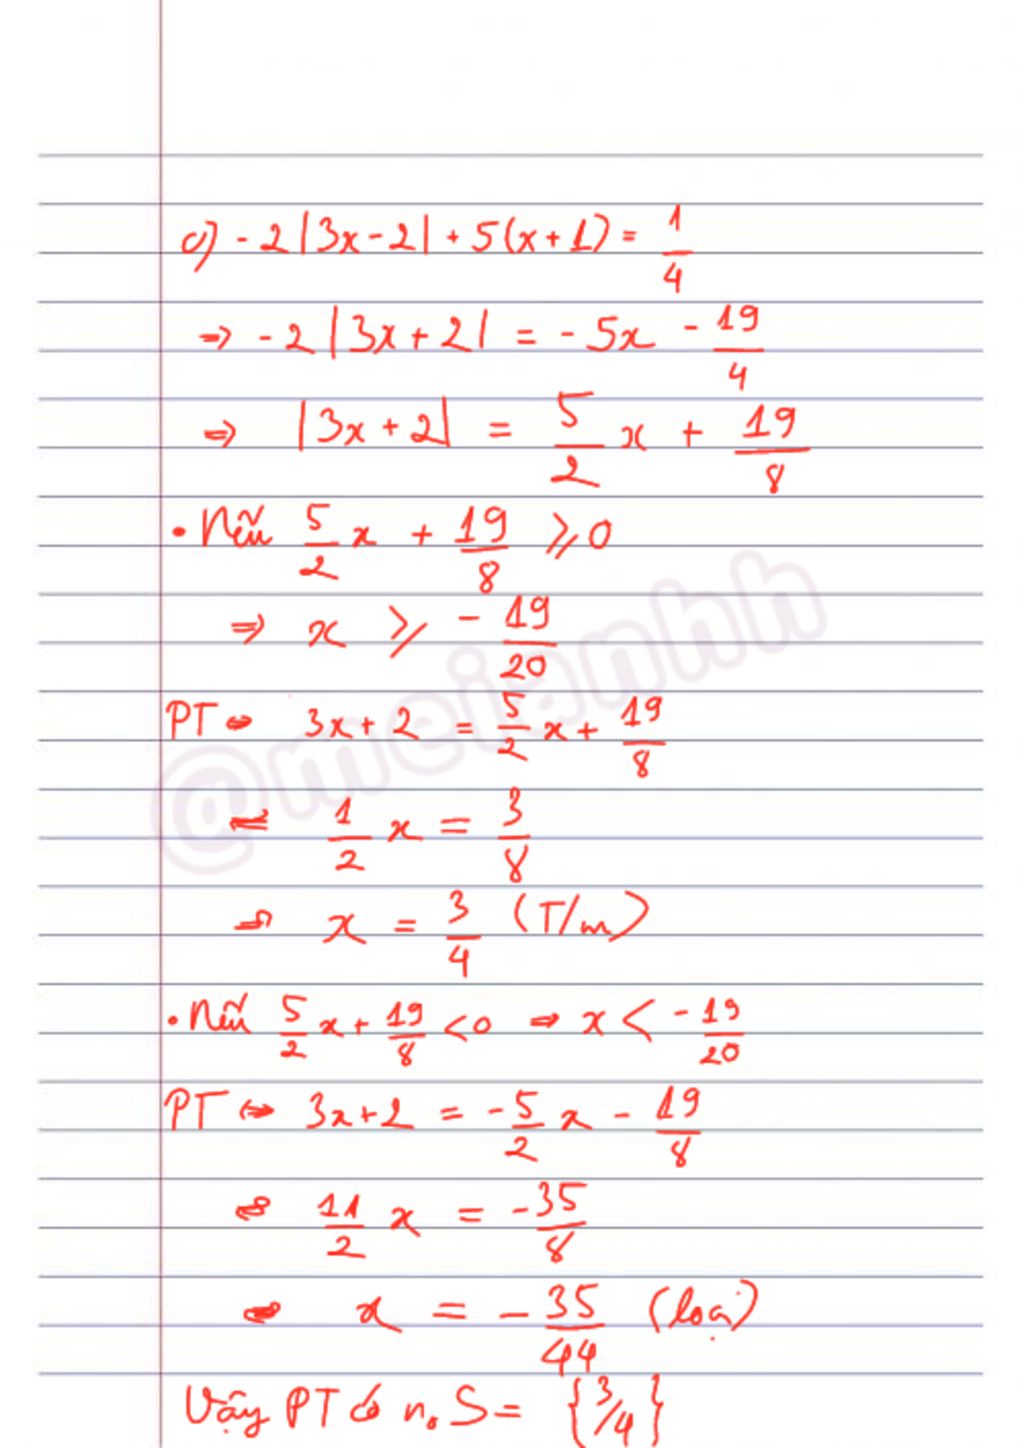 c) -2|3x-2| + 5(x+1) = 1/4
⇒ -2|3x+2| = -5x - 19/4
⇒ |3x+2| = 5/2 x + 19/8
• Nếu 5/2 x + 19/8 ⩾ 0
⇒ x ⩾ - 19/20
PT ⇔ 3x+2 = 5/2 x + 19/8
⇔ 1/2 x = 3/8
⇔ x = 3/4 (T/m)
• Nếu 5/2 x + 19/8 < 0 ⇒ x < - 19/20
PT ⇔ 3x+2 = -5/2 x - 19/8
⇔ 11/2 x = -35/8
⇔ x = - 35/44 (loại)
Vậy PT có n₀ S = {3/4}
@meianhh